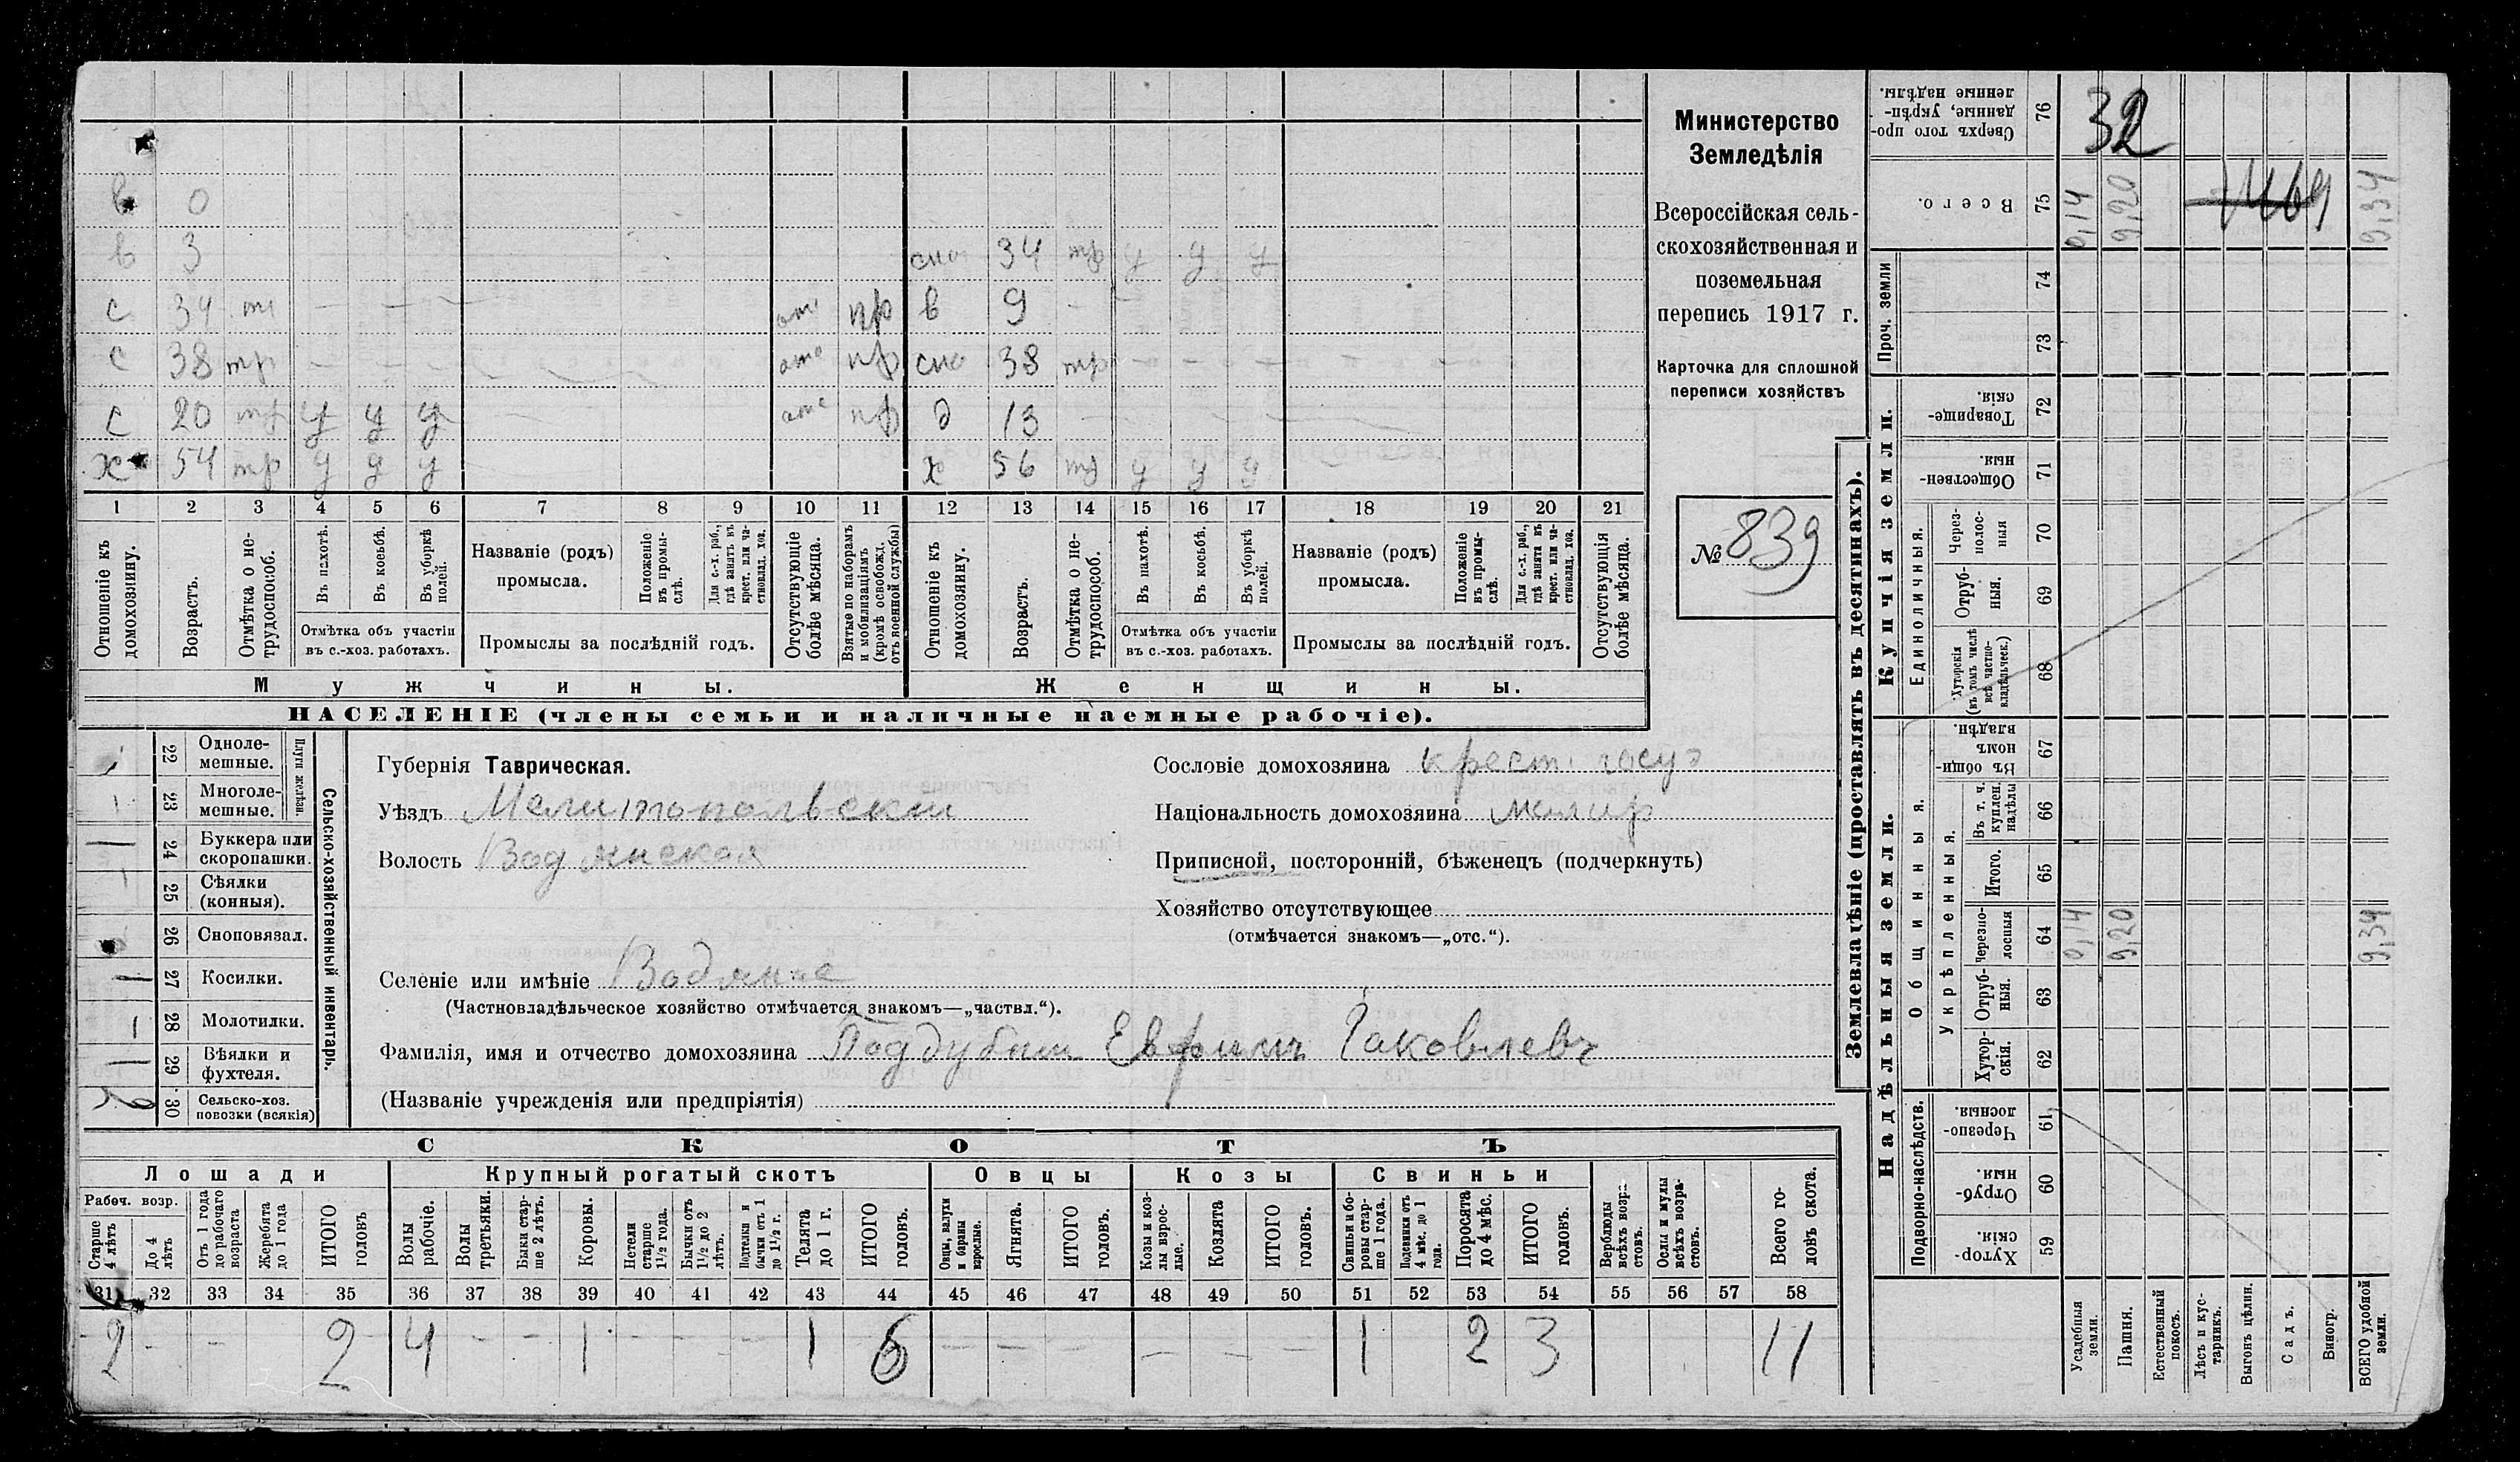 в 0
в 3 сно 34 тр у у у
с 34 тр — — отс пр в 9 —
с 38 тр — — — отс пр сно 38 тр — — —
с 20 тр у у у отс пр д 13
х 54 тр у у у х 56 тр у у у
1 2 3 4 5 6 7 8 9 10 11 12 13 14 15 16 17 18 19 20 21
Отношеніе къ домохозяину.
Возрастъ.
Отмѣтка о нетрудоспособ.
Въ пахотѣ.
Въ косьбѣ.
Въ уборкѣ полей.
Отмѣтка объ участіи
въ с.-хоз. работахъ.
Названіе (родъ)
промысла.
Положеніе въ промыслѣ.
Для с.-х. раб., гдѣ занятъ въ крест. или частновлад. хоз.
Промыслы за послѣдній годъ.
Отсутствующіе болѣе мѣсяца.
Взятые по наборамъ и мобилизаціямъ (кромѣ освобожд. отъ военной службы)
Отношеніе къ домохозяину.
Возрастъ.
Отмѣтка о нетрудоспособ.
Въ пахотѣ.
Въ косьбѣ.
Въ уборкѣ полей.
Отмѣтка объ участіи
въ с.-хоз. работахъ.
Названіе (родъ)
промысла.
Положеніе въ промыслѣ.
Для с.-х. раб., гдѣ занятъ въ крест. или частновлад. хоз.
Промыслы за послѣдній годъ.
Отсутствующія болѣе мѣсяца.
Мужчины.
Женщины.
НАСЕЛЕНІЕ (члены семьи и наличные наемные рабочіе).
Министерство
Земледѣлія
Всероссійская сель-
скохозяйственная и
поземельная
перепись 1917 г.
Карточка для сплошной
переписи хозяйствъ
№ 839
22 Однолемешные.
23 Многолемешные.
Плуги желѣзн.
24 Буккера или скоропашки.
25 Сѣялки (конныя).
26 Сноповязал.
27 Косилки.
28 Молотилки.
29 Вѣялки и фухтеля.
30 Сельско-хоз. повозки (всякія)
Сельско-хозяйственный инвентарь.
Губернія Таврическая.
Уѣздъ Мелитопольскій
Волость Водянская
Сословіе домохозяина крест. госуд
Національность домохозяина малор
Приписной, посторонній, бѣженецъ (подчеркнуть)
Хозяйство отсутствующее
(отмѣчается знакомъ—„отс.“).
Селеніе или имѣніе Водяное
(Частновладѣльческое хозяйство отмѣчается знакомъ—„частвл.“).
Фамилія, имя и отчество домохозяина Поддубный Ефимъ Яковлевъ
(Названіе учрежденія или предпріятія)
СКОТЪ
Лошади
Крупный рогатый скотъ
Овцы
Козы
Свиньи
Рабоч. возр.
Старше 4 лѣтъ
До 4 лѣтъ
Отъ 1 года до рабочаго возраста
Жеребята до 1 года
ИТОГО головъ
Волы рабочіе.
Волы третьяки.
Быки старше 2 лѣтъ.
Коровы.
Нетели старше 1½ года.
Бычки отъ 1½ до 2 лѣтъ.
Подтелки и бычки отъ 1 до 1½ г.
Телята до 1 г.
ИТОГО головъ.
Овцы, валухи и бараны взрослые.
Ягнята.
ИТОГО головъ.
Козы и козлы взрослые.
Козлята
ИТОГО головъ.
Свиньи и боровы старше 1 года.
Подсвинки отъ 4 мѣс. до 1 года.
Поросята до 4 мѣс.
ИТОГО головъ.
Верблюды всѣхъ возрастовъ.
Ослы и мулы всѣхъ возрастовъ.
Всего головъ скота.
31 32 33 34 35 36 37 38 39 40 41 42 43 44 45 46 47 48 49 50 51 52 53 54 55 56 57 58
2 — — 2 4 — — 1 — — — 1 6 — — — — — 1 2 3 11
Землевладѣніе (проставлять въ десятинахъ).
Надѣльныя земли.
Купчія земли.
Проч. земли
Подворно-наслѣдств.
Общинныя.
Укрѣпленныя.
Единоличныя.
76 Сверхъ того проданные, укрѣпленные надѣлы. 32
75 Всего. 0,14 9,20 7469 9,34
74
73
72 Товарищескія.
71 Общественныя.
70 Черезполосныя
69 Отрубныя.
68 Хуторскія (въ томъ числѣ всѣ частновладѣльческ.)
67 Въ общинномъ владѣн.
66 Въ т. ч. куплен. надѣлы
65 Итого.
64 Черезполосныя 0,14 9,20 9,34
63 Отрубныя.
62 Хуторскія.
61 Черезполосныя.
60 Отрубныя.
59 Хуторскія.
Усадебныя земли.
Пашня.
Естественный покосъ.
Лѣсъ и кустарникъ.
Выгонъ цѣлин.
Садъ.
Виногр.
ВСЕГО удобной земли.